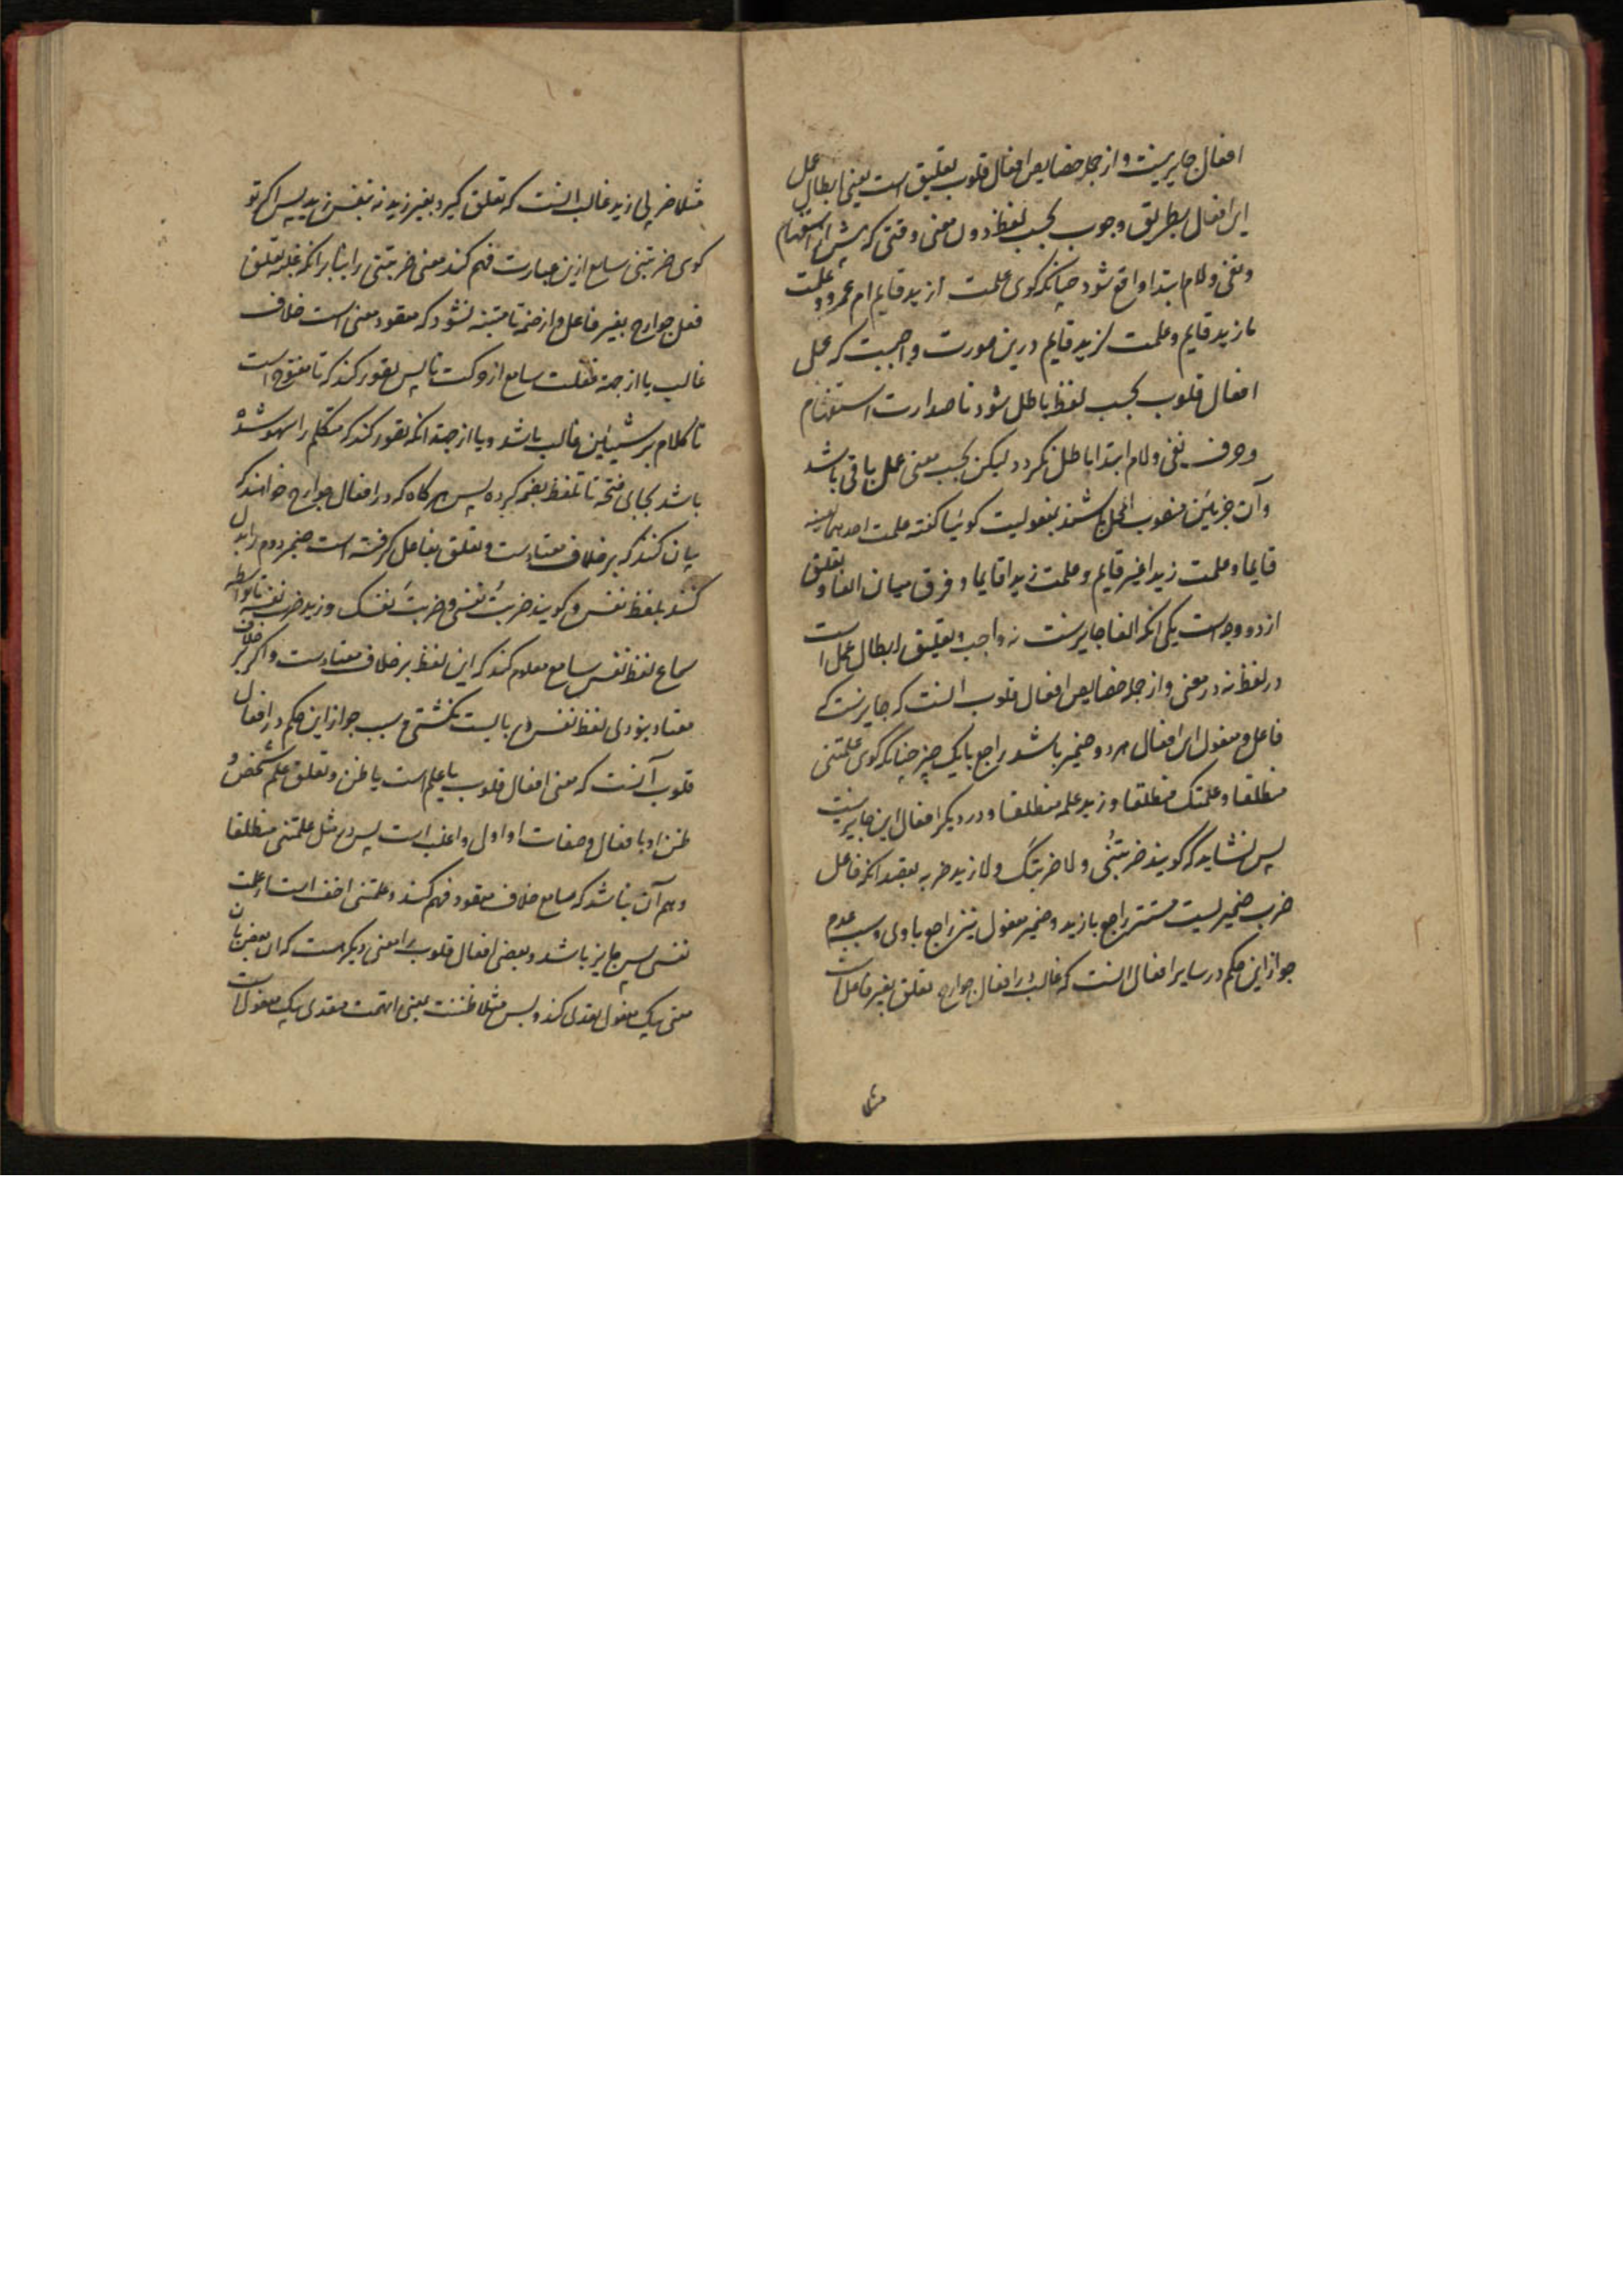 افعال جایز نیست و از جمله خصایص افعال قلوب تعلیق است یعنی ابطال عمل
این افعال بطریق وجوب بحسب لفظ دون معنی وقتی که پیش از استفهام
و نفی و لام ابتدا واقع شود چنانکه گوی علمت ازید قایم ام عمرو و علمت
ما زید قایم و علمت لزید قایم درین صورت واجبست که عمل
افعال قلوب بحسب لفظ باطل شود تا صدارت استفهام
و حرف نفی و لام ابتدا باطل نکردد لیکن بحسب معنی عمل باقی باشد
و آن جزئین منصوب المحل باشند بمفعولیت کوئیا کفته علمت احدهما بعینه
قایما و علمت زیدا غیر قایم و علمت زیدا قایما و فرق میان الغا و تعلیق
از دو وجه است یکی انکه الغا جایزست نه واجب و تعلیق ابطال عمل است
در لفظ نه در معنی و از جمله خصایص افعال قلوب انست که جایزست که
فاعل و مفعول این افعال هر دو ضمیر باشد راجع بایک چیز چنانکه گوی علمتنی
منطلقا و علمتک منطلقا و زید علمه منطلقا و در دیگر افعال این جایز نیست
پس نشاید که گویند ضربتنی و لا ضربتک و لا زید ضربه بقصد انکه فاعل
ضرب ضمیریست مستتر راجع با زید و ضمیر مفعول نیز راجع باوی و سبب عدم
جواز این حکم در سایر افعال انست که غالب در افعال جوارح تعلق بغیر فاعل است
مثلا
مثلا ضربی زید غالب انست که تعلق کیرد بغیر زید نه بنفس زید پس اکر تو
کوی ضربتنی سامع ازین عبارت فهم کند معنی ضربتنی را بنابر انکه غلبه تعلق
فعل جوارح بغیر فاعل و از ضمه تا متنبه نشود که مقصود معنی است خلاف
غالب یا از جهة غفلت سامع از حرکت تا پس تصور کند که تا مفتوح است
تا کلام بر غالب باشد و یا از جهة انکه تصور کند که متکلم را سهو شده
باشد بجای فتحه تا تلفظ بضمه کرده پس هرکاه که در افعال جوارح خواهند که
بیان کنند که بر خلاف معتادست و تعلق بفاعل کرفته است ضمیر دوم را بدل
کنند بلفظ نفس و کویند ضربتُ نفسی و ضربتَ نفسک و زید ضرب نفسه تا بواسطه
سماع لفظ نفس سامع معلوم کند که این لفظ بر خلاف معتادست و اکر بر خلاف
معتاد نبودی لفظ نفس در نبایست نکشتی و سبب جواز این حکم در افعال
قلوب آنست که معنی افعال قلوب یا علم است یا ظن و تعلق علم شخص و
ظن او با فعال و صفات او اول و اغلب است پس در مثل علمتنی منطلقا
وهم آن نباشد که سامع خلاف مقصود فهم کند و علمتنی اخف است از علمت
نفسی پس جایز باشد و بعضی افعال قلوب را معنی دیکر هست که ان بعض بان
معنی بیک مفعول تعدی کند و بس مثلا ظننت بمعنی اتهمت متعدی بیک مفعول است